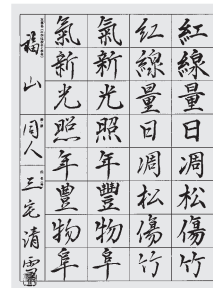 紅線量日凋松傷竹
紅線量日凋松傷竹
氣新光照年豐物阜
氣新光照年豐物阜
福山 同人 三宅清